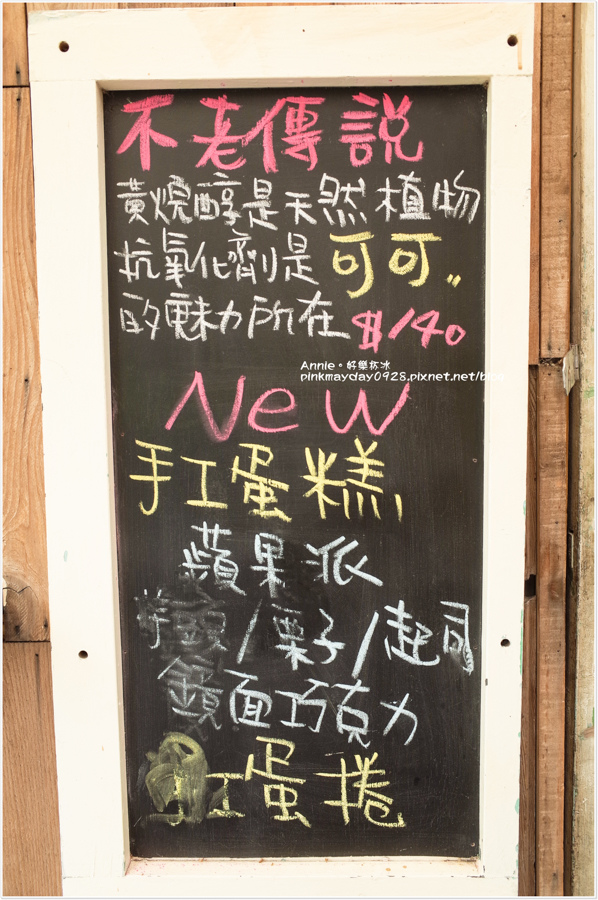 不老傳說
黃烷醇是天然植物
抗氧化劑是可可〃
的魅力所在$140
Annie。好樂杯冰
pinkmayday0928.pixnet.net/blog
New
手工蛋糕
蘋果派
芋頭/栗子/起司
鏡面巧克力
手工蛋捲